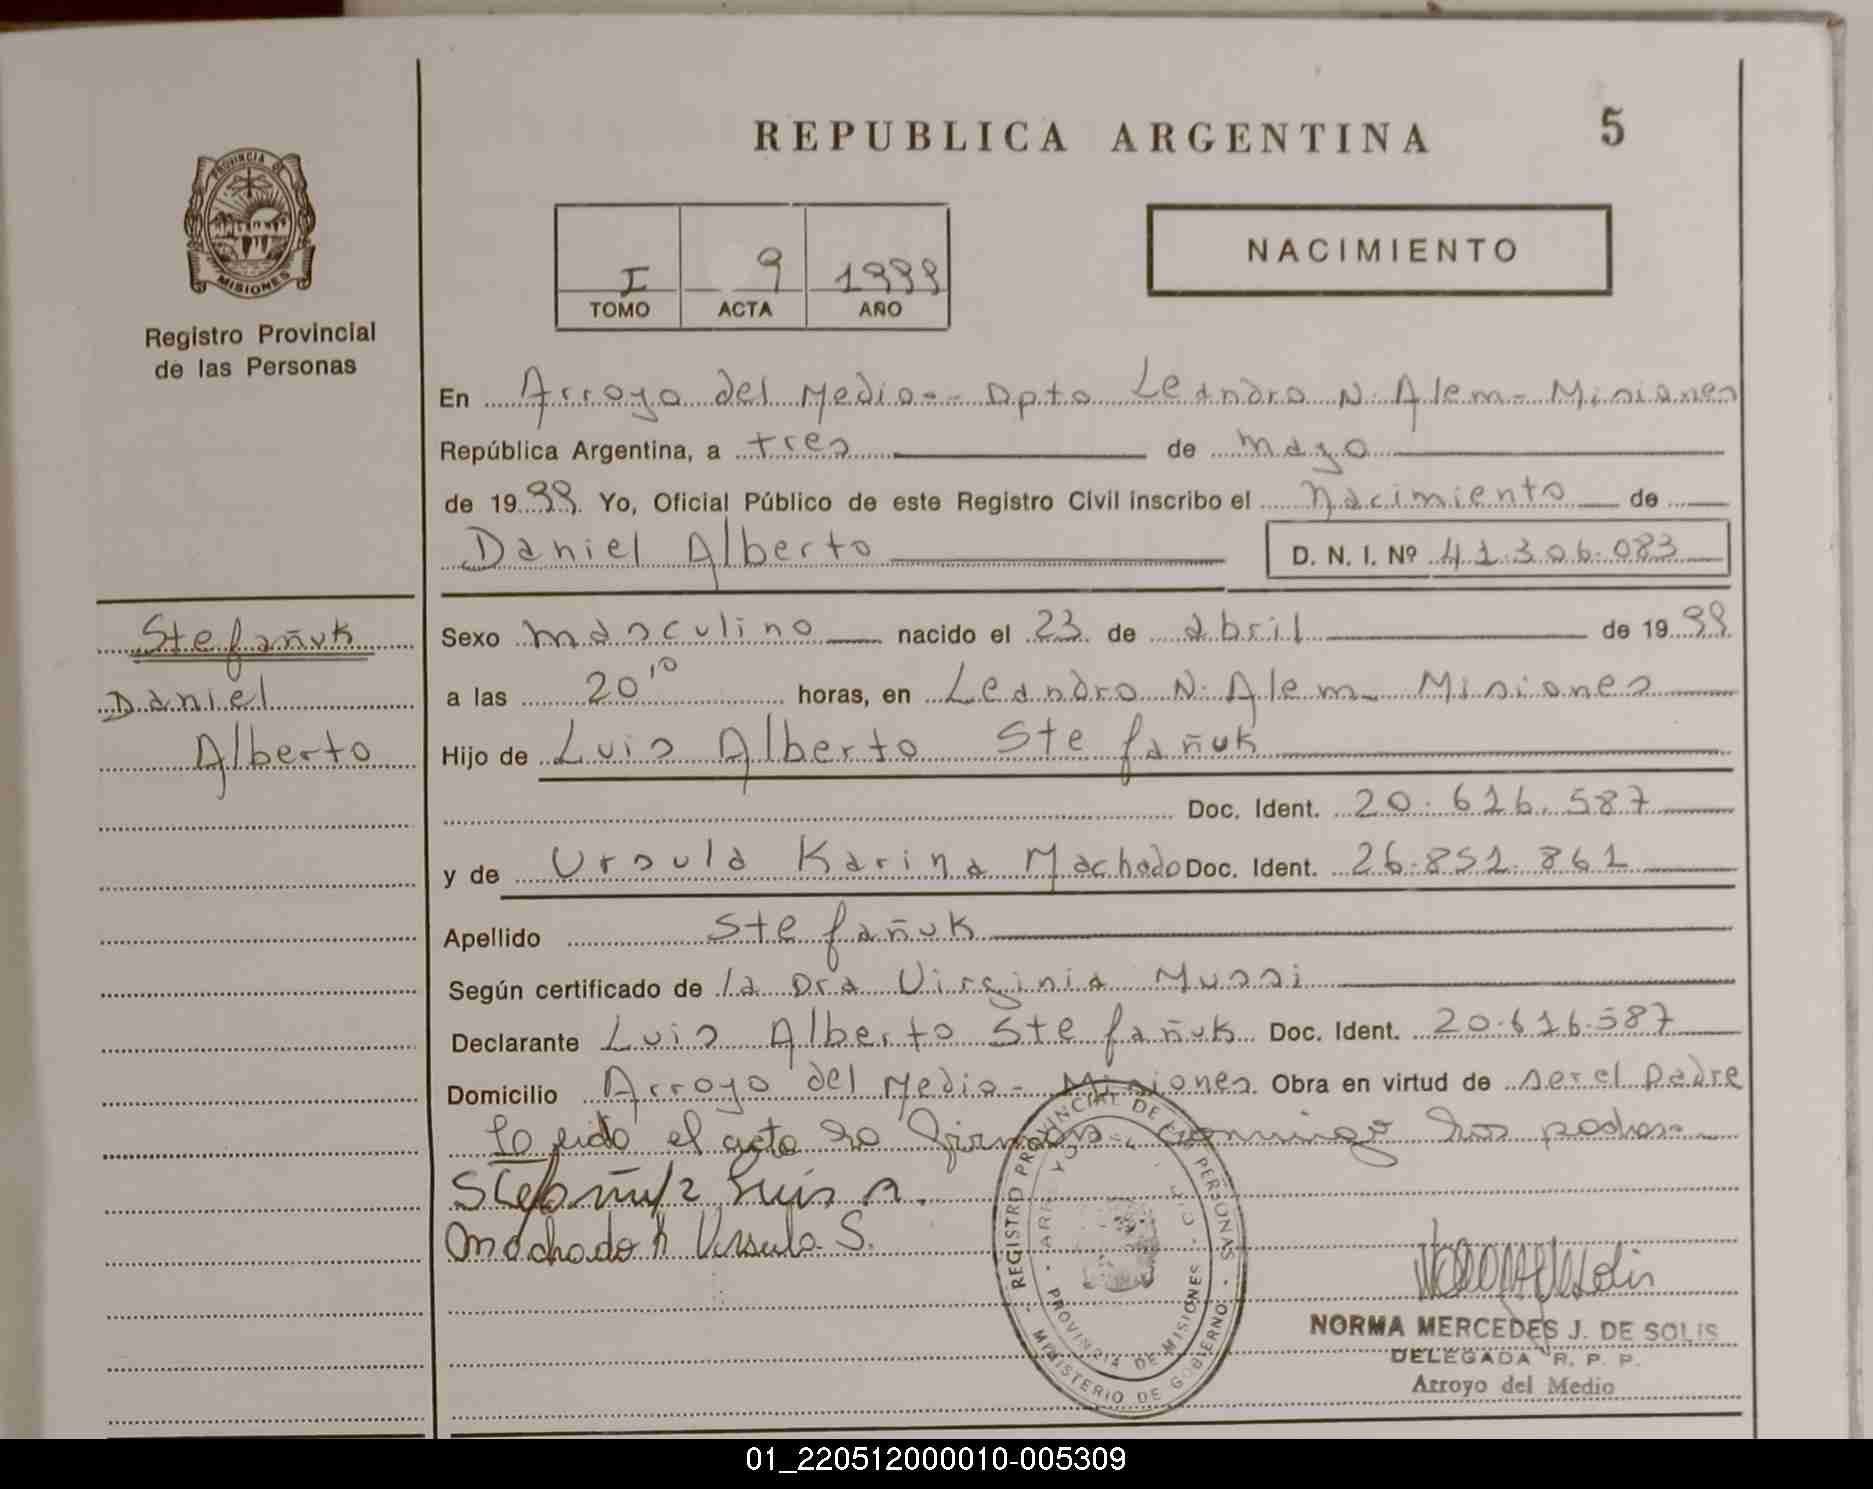 REPUBLICA ARGENTINA
5
PROVINCIA DE MISIONES
Registro Provincial
de las Personas
I 9 1999
TOMO ACTA AÑO
NACIMIENTO
En Arroyo del Medio - Dpto Leandro N. Alem - Misiones
República Argentina, a tres de mayo
de 1999 Yo, Oficial Público de este Registro Civil inscribo el Nacimiento de
Daniel Alberto D. N. I. Nº 41.306.083
Stefañuk
Daniel
Alberto
Sexo masculino nacido el 23 de abril de 1999
a las 20¹⁰ horas, en Leandro N. Alem - Misiones
Hijo de Luis Alberto Stefañuk
Doc. Ident. 20.616.587
y de Ursula Karina Machado Doc. Ident. 26.851.861
Apellido Stefañuk
Según certificado de la Dra Virginia Mussi
Declarante Luis Alberto Stefañuk Doc. Ident. 20.616.587
Domicilio Arroyo del Medio - Misiones Obra en virtud de ser el padre
Leído el acto lo firman conmigo los padres
Stefañuk Luis A.
Machado K Ursula S.
REGISTRO PROVINCIAL DE LAS PERSONAS
MINISTERIO DE GOBIERNO
PROVINCIA DE MISIONES
NORMA MERCEDES J. DE SOLIS
DELEGADA R. P. P.
Arroyo del Medio
01_220512000010-005309